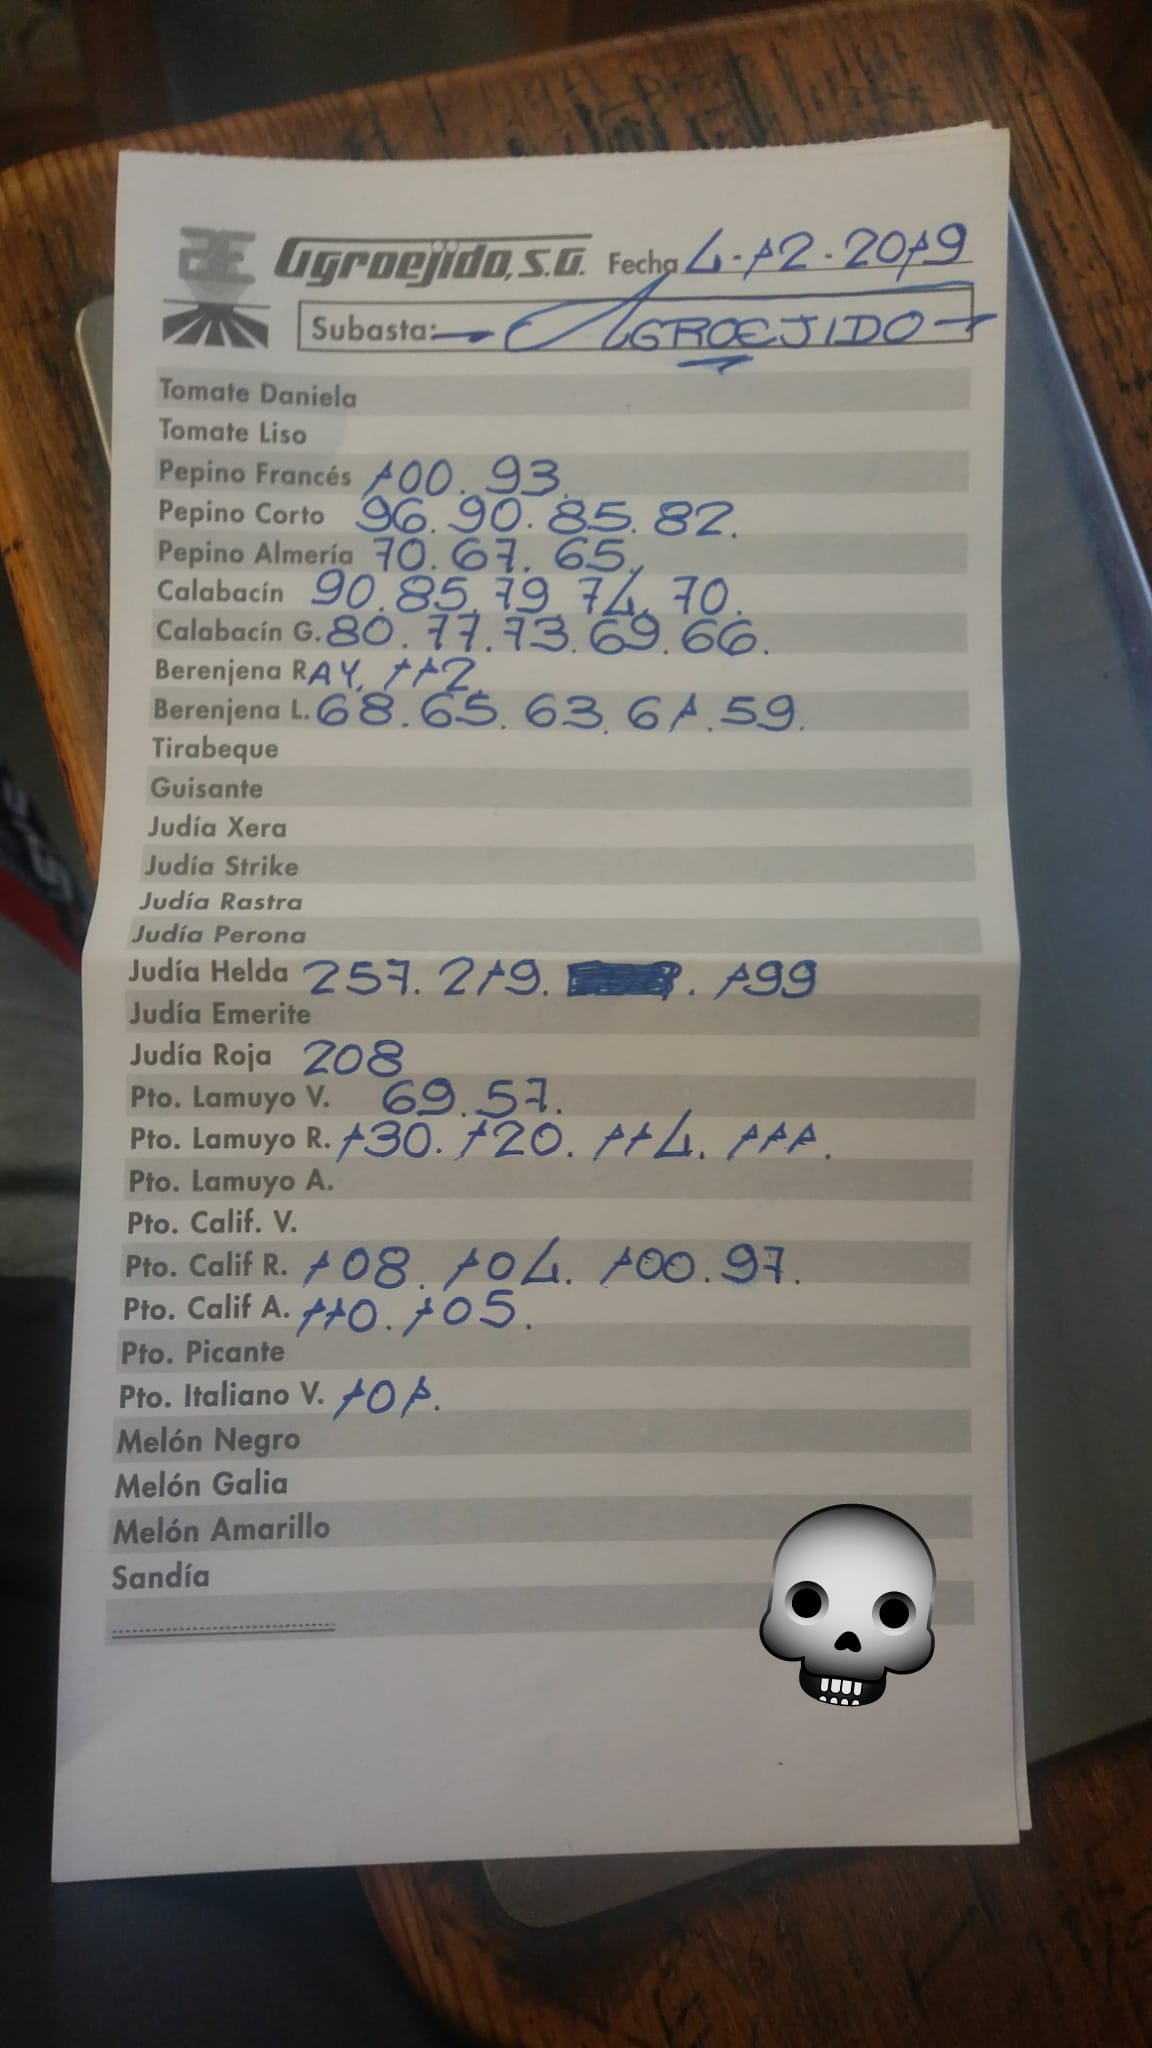 AE Agroejido, S.A. Fecha 4-12-2019
Subasta: AGROEJIDO
Tomate Daniela
Tomate Liso
Pepino Francés 100. 93.
Pepino Corto 96. 90. 85. 82.
Pepino Almería 70. 67. 65.
Calabacín 90. 85. 79. 74. 70.
Calabacín G. 80. 77. 73. 69. 66.
Berenjena RAY. 112.
Berenjena L. 68. 65. 63. 61. 59.
Tirabeque
Guisante
Judía Xera
Judía Strike
Judía Rastra
Judía Perona
Judía Helda 257. 219. . 199
Judía Emerite
Judía Roja 208
Pto. Lamuyo V. 69. 57.
Pto. Lamuyo R. 130. 120. 114. 111.
Pto. Lamuyo A.
Pto. Calif. V.
Pto. Calif R. 108. 104. 100. 97.
Pto. Calif A. 110. 105.
Pto. Picante
Pto. Italiano V. 101.
Melón Negro
Melón Galia
Melón Amarillo
Sandía